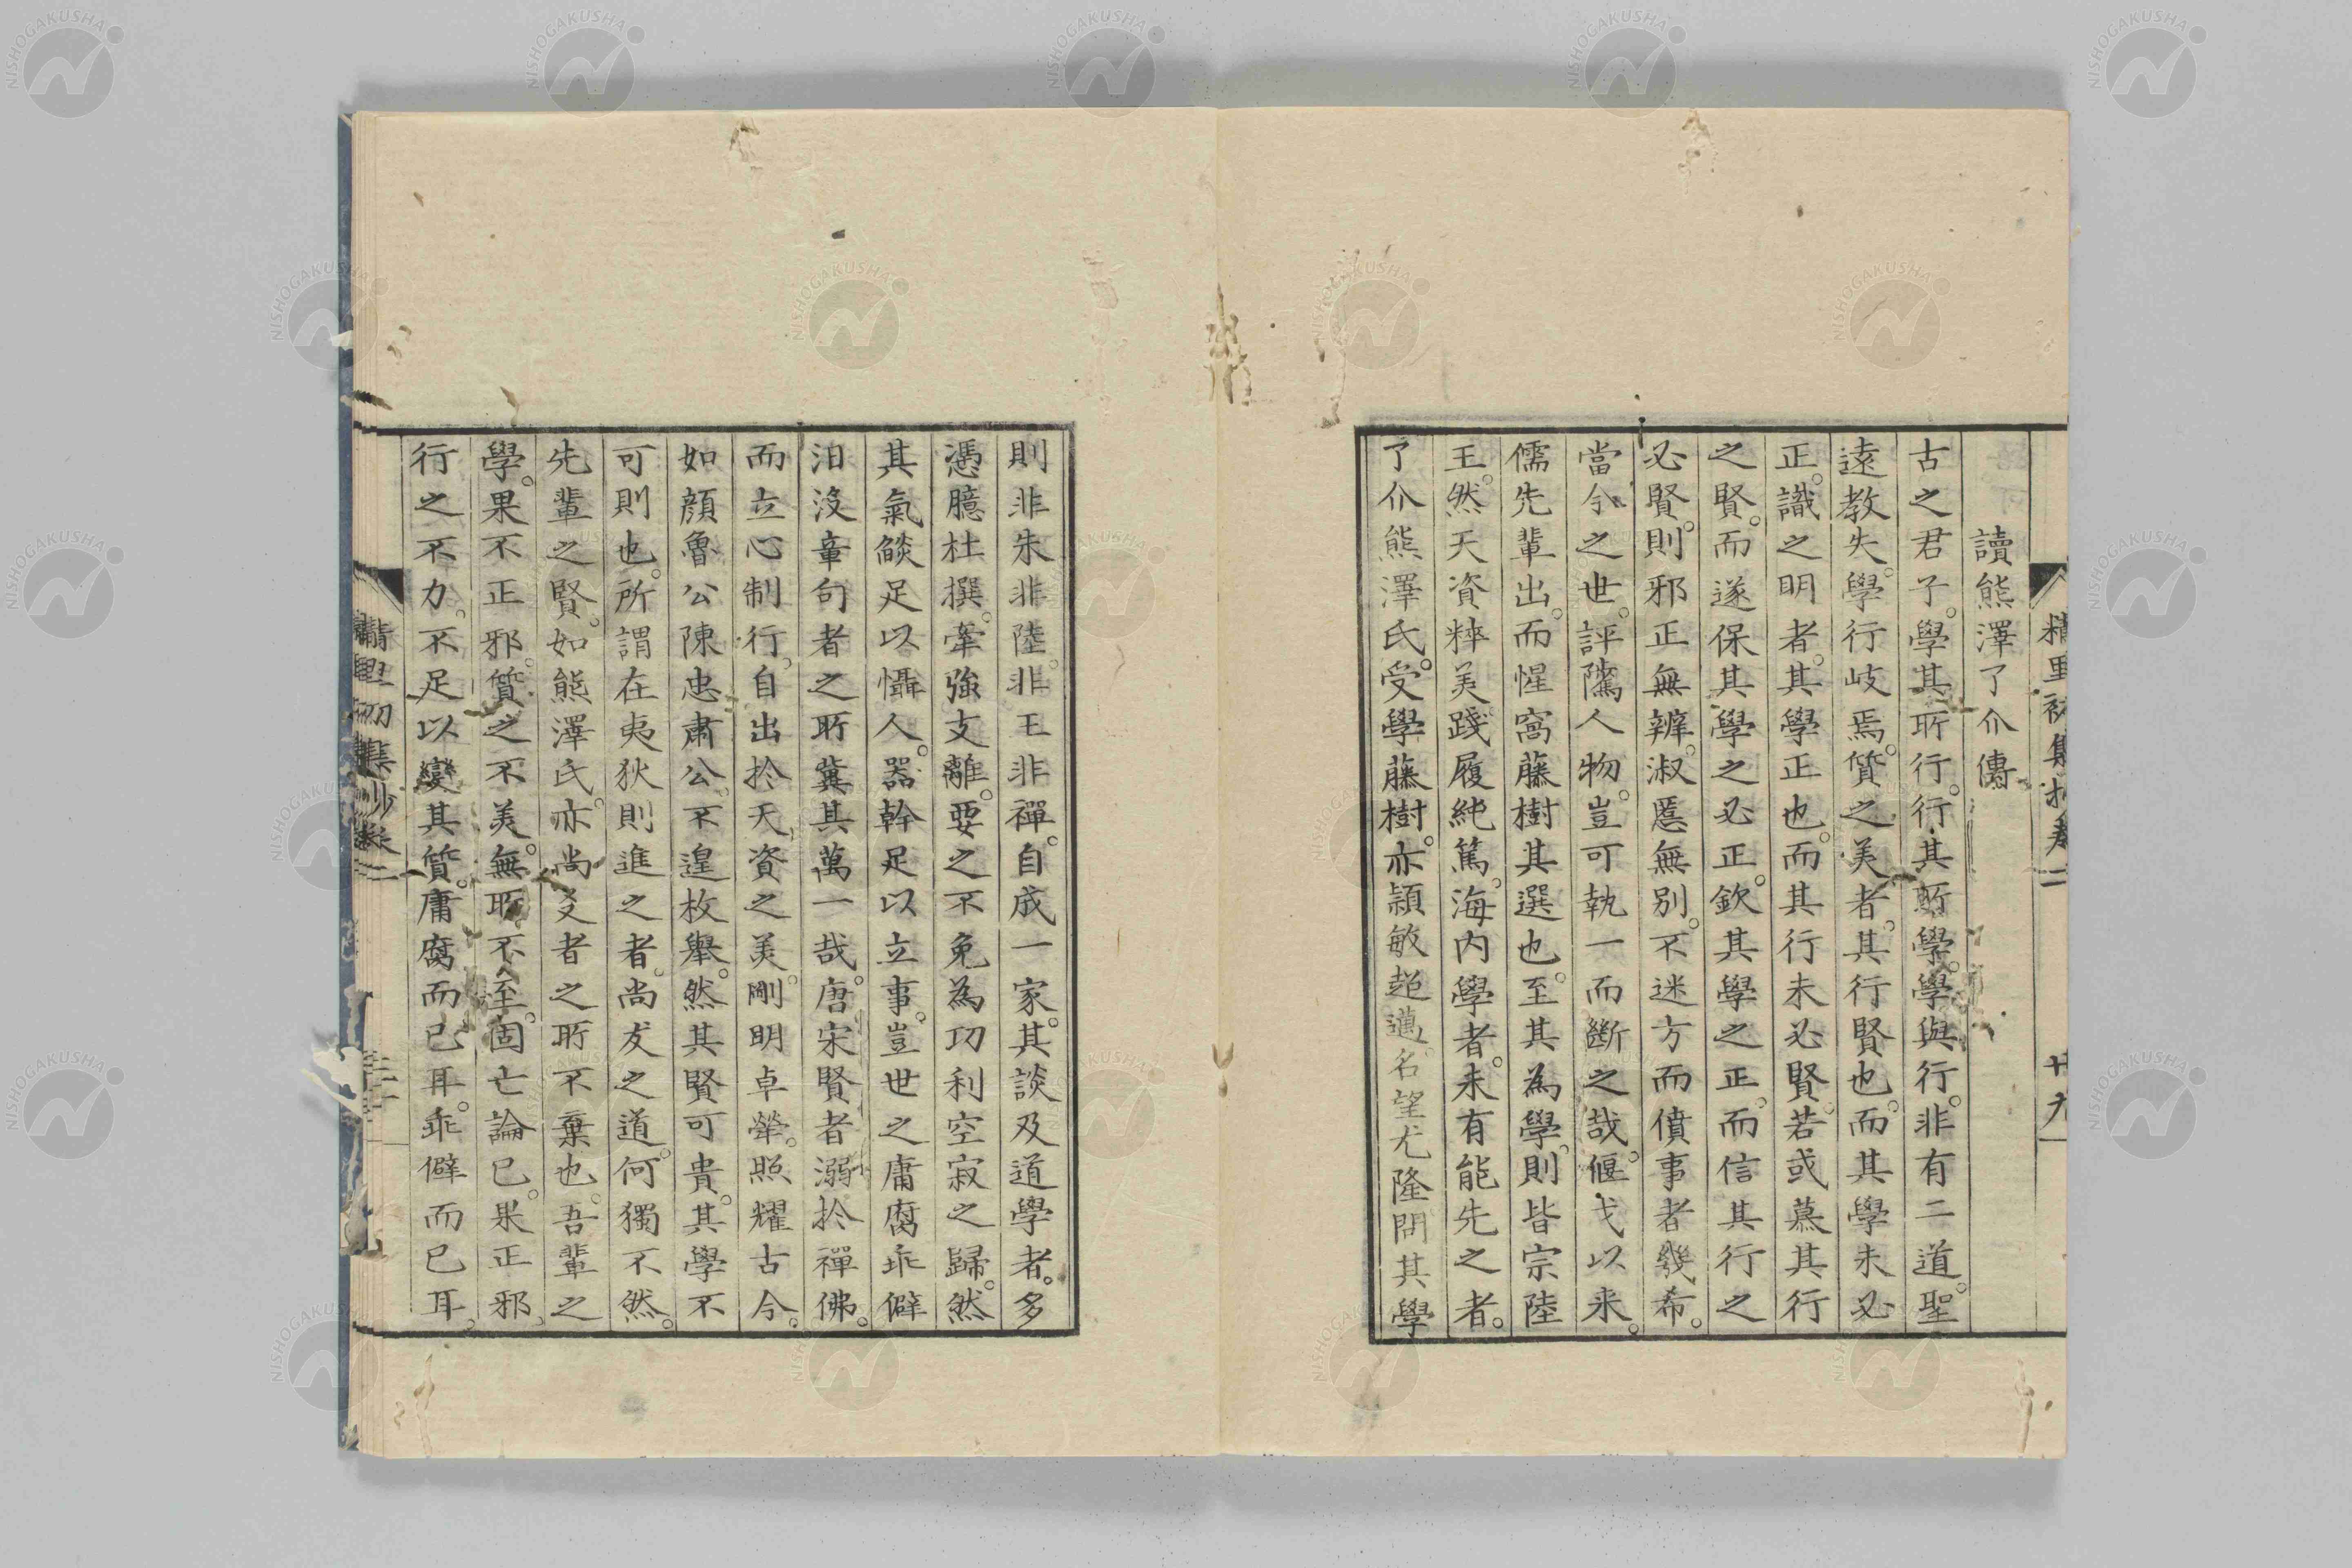 精里初集抄卷二
廿九
讀熊澤了介傳
古之君子。學其所行。行其所學。學與行。非有二道。聖
遠教失。學行岐焉。質之美者。其行賢也。而其學未必
正。識之明者。其學正也。而其行未必賢。若或慕其行
之賢。而遂保其學之必正。欽其學之正。而信其行之
必賢。則邪正無辨。淑慝無別。不迷方而僨事者幾希。
當今之世。評隲人物。豈可執一而斷之哉。偃戈以来。
儒先輩出。而惺窩藤樹其選也。至其為學。則皆宗陸
王。然天資粹美踐履純篤。海内學者。未有能先之者。
了介熊澤氏。受學藤樹。亦頴敏超邁。名望尤隆。問其學
則非朱非陸。非王非禪。自成一家。其談及道學者。多
憑臆杜撰。牽強支離。要之不免為功利空寂之歸。然
其氣燄足以懾人。器幹足以立事。豈世之庸腐乖僻
汨沒章句者之所冀其萬一哉。唐宋賢者溺於禪佛。
而立心制行。自出於天資之美。剛明卓犖。照耀古今。
如顔魯公陳忠肅公。不遑枚舉。然其賢可貴。其學不
可則也。所謂在夷狄則進之者。尚友之道。何獨不然。
先輩之賢。如熊澤氏。亦尚友者之所不棄也。吾輩之
學。果不正邪。質之不美。無所不至。固亡論已。果正邪。
行之不力。不足以變其質。庸腐而已耳。乖僻而已耳。
精里初集抄卷二